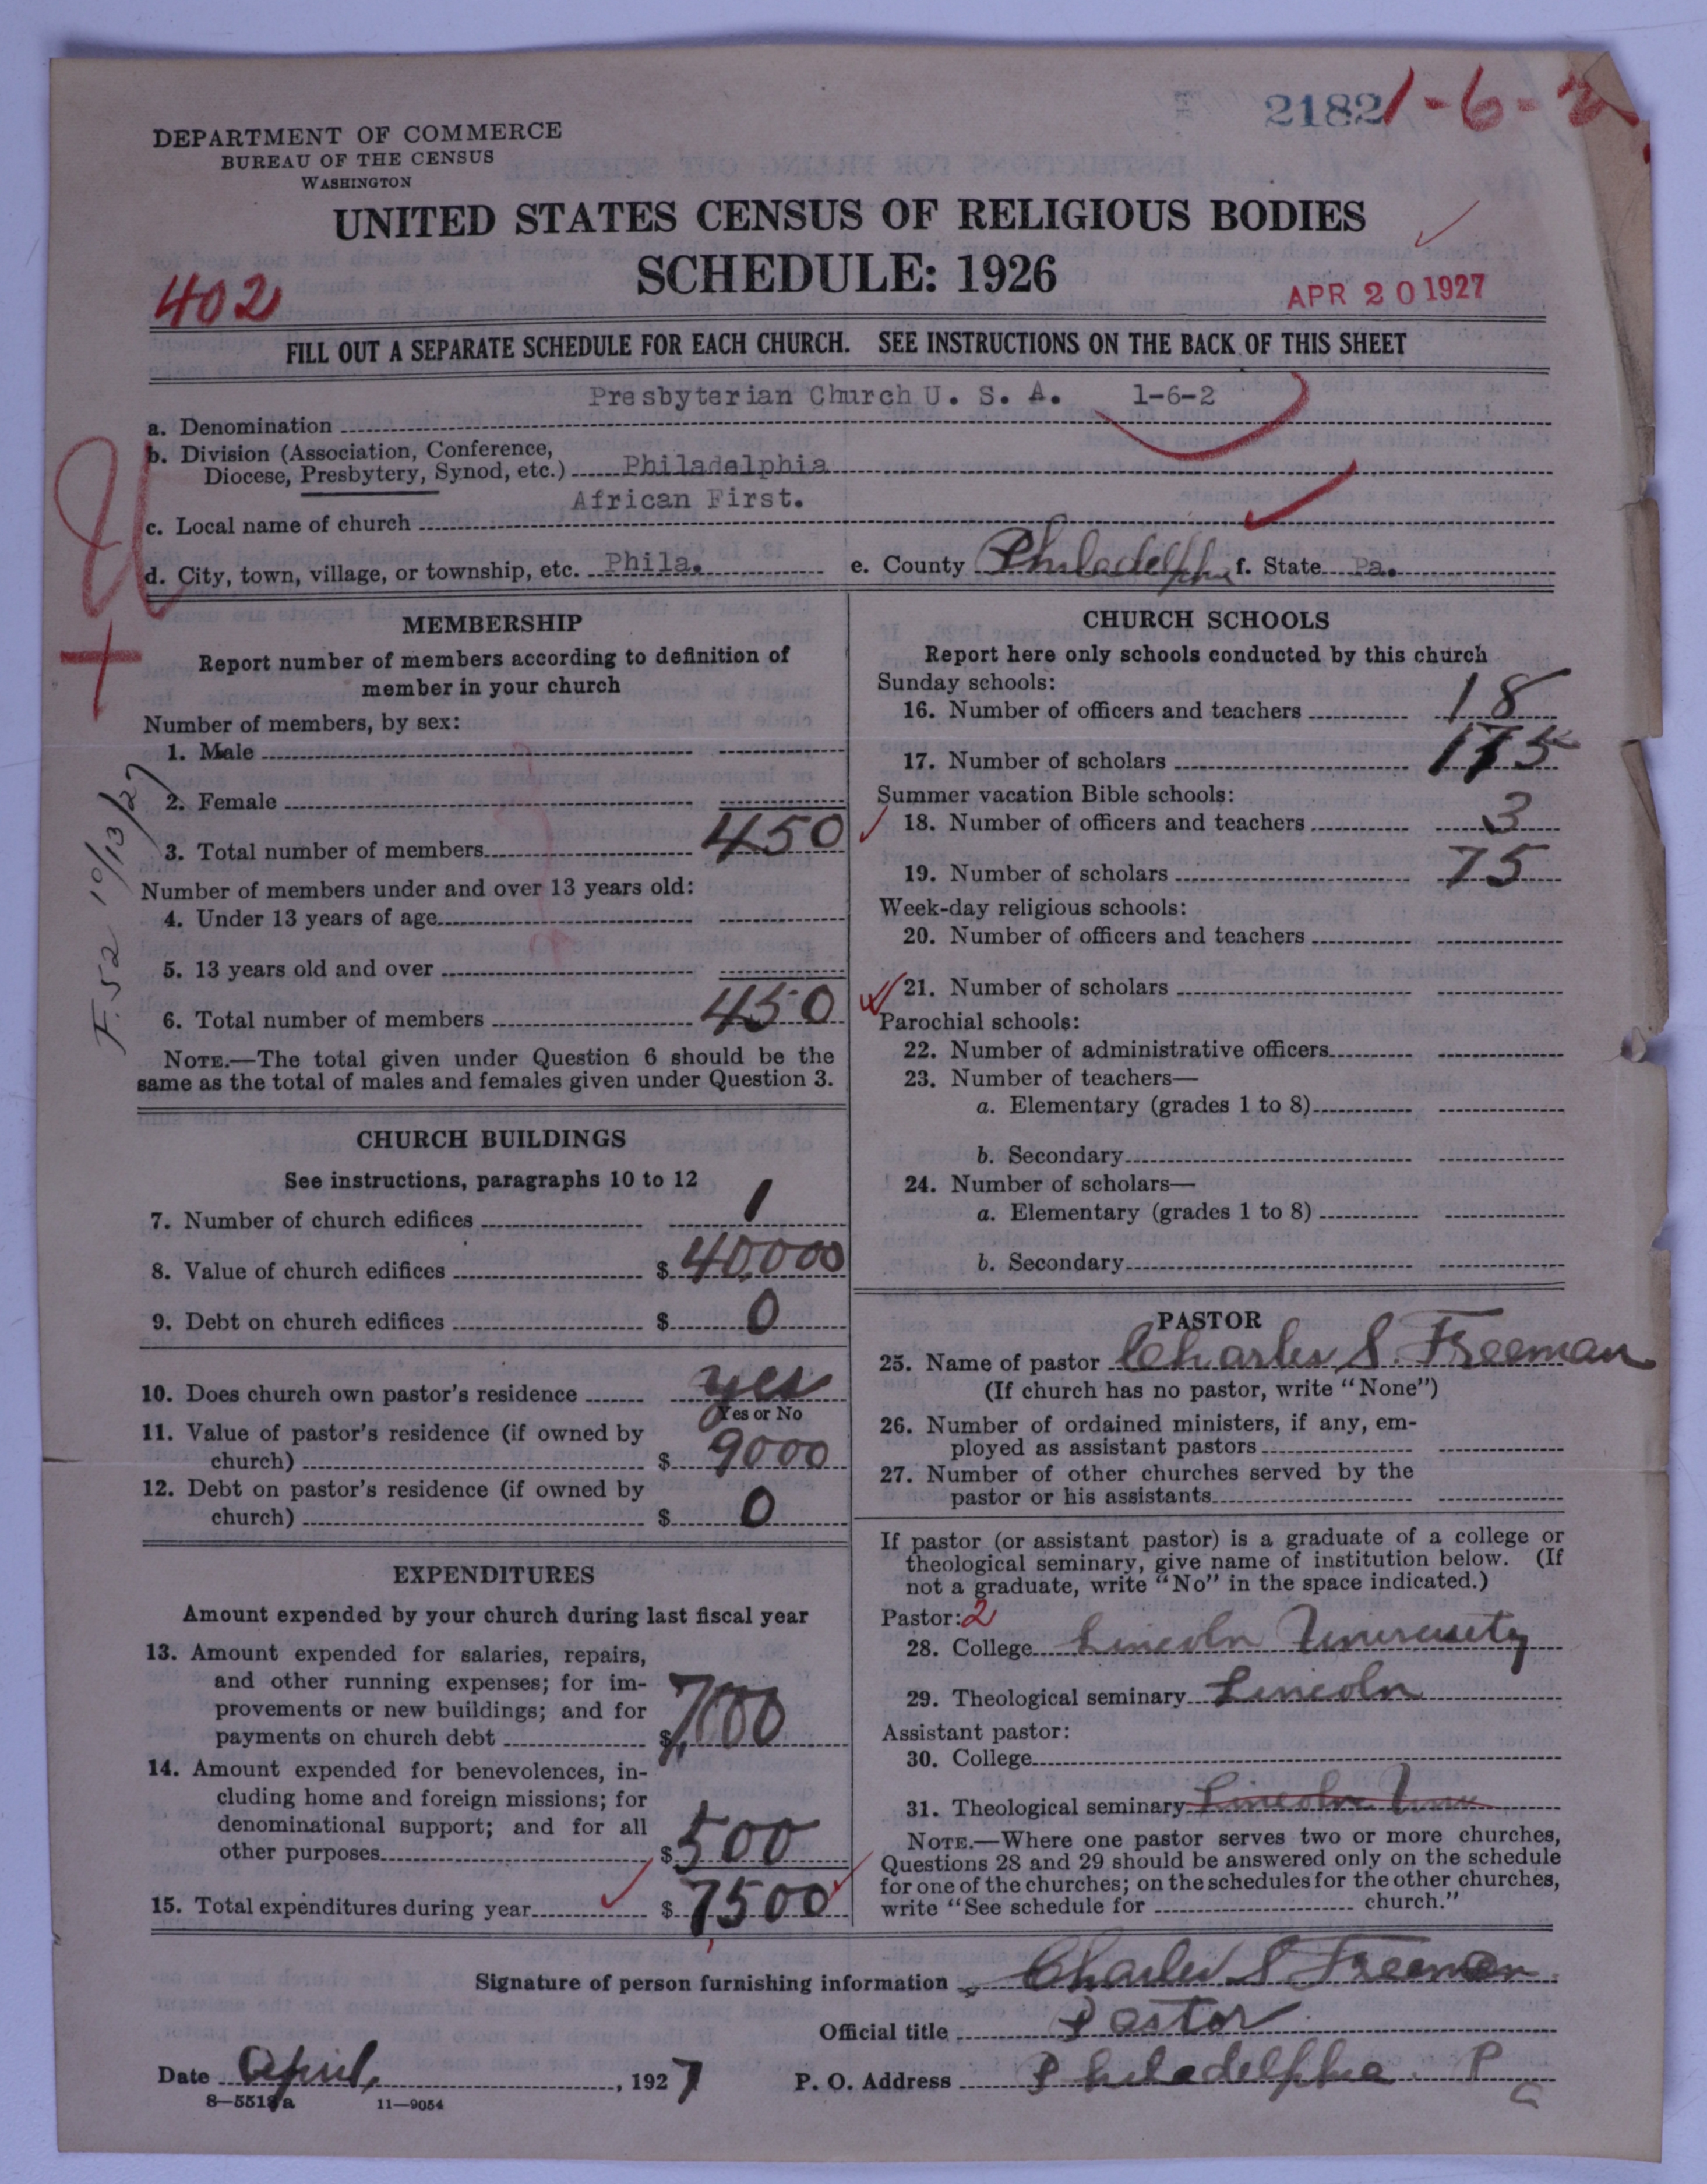 2182 1-6-2
DEPARTMENT OF COMMERCE
BUREAU OF THE CENSUS
WASHINGTON
UNITED STATES CENSUS OF RELIGIOUS BODIES
SCHEDULE: 1926
402
APR 20 1927
FILL OUT A SEPARATE SCHEDULE FOR EACH CHURCH. SEE INSTRUCTIONS ON THE BACK OF THIS SHEET
a. Denomination Presbyterian Church U. S. A. 1-6-2
b. Division (Association, Conference,
Diocese, Presbytery, Synod, etc.) Philadelphia
c. Local name of church African First.
d. City, town, village, or township, etc. Phila. e. County Philadelphia f. State Pa.
F.52 10/13/27
MEMBERSHIP
Report number of members according to definition of
member in your church
Number of members, by sex:
1. Male
2. Female
3. Total number of members 450
Number of members under and over 13 years old:
4. Under 13 years of age
5. 13 years old and over
6. Total number of members 450
NOTE.—The total given under Question 6 should be the
same as the total of males and females given under Question 3.
CHURCH BUILDINGS
See instructions, paragraphs 10 to 12
7. Number of church edifices 1
8. Value of church edifices $ 40,000
9. Debt on church edifices $ 0
10. Does church own pastor's residence yes
Yes or No
11. Value of pastor's residence (if owned by
church) $ 9000
12. Debt on pastor's residence (if owned by
church) $ 0
EXPENDITURES
Amount expended by your church during last fiscal year
13. Amount expended for salaries, repairs,
and other running expenses; for im-
provements or new buildings; and for
payments on church debt $ 7,000
14. Amount expended for benevolences, in-
cluding home and foreign missions; for
denominational support; and for all
other purposes $ 500
15. Total expenditures during year $ 7500
CHURCH SCHOOLS
Report here only schools conducted by this church
Sunday schools:
16. Number of officers and teachers 18
17. Number of scholars 175
Summer vacation Bible schools:
18. Number of officers and teachers 3
19. Number of scholars 75
Week-day religious schools:
20. Number of officers and teachers
21. Number of scholars
Parochial schools:
22. Number of administrative officers
23. Number of teachers—
a. Elementary (grades 1 to 8)
b. Secondary
24. Number of scholars—
a. Elementary (grades 1 to 8)
b. Secondary
PASTOR
25. Name of pastor Charles S. Freeman
(If church has no pastor, write "None")
26. Number of ordained ministers, if any, em-
ployed as assistant pastors
27. Number of other churches served by the
pastor or his assistants
If pastor (or assistant pastor) is a graduate of a college or
theological seminary, give name of institution below. (If
not a graduate, write "No" in the space indicated.)
Pastor: 2
28. College Lincoln University
29. Theological seminary Lincoln
Assistant pastor:
30. College
31. Theological seminary Lincoln Univ
NOTE.—Where one pastor serves two or more churches,
Questions 28 and 29 should be answered only on the schedule
for one of the churches; on the schedules for the other churches,
write "See schedule for church."
Signature of person furnishing information Charles S Freeman
Official title Pastor
Date April, 1927 P. O. Address Philadelphia. Pa
11—9054